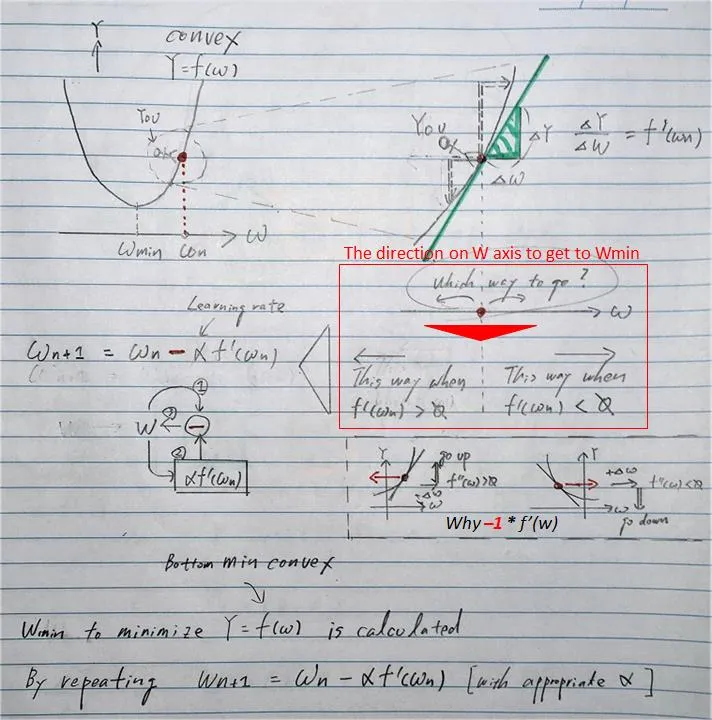 Y
convex
Y=f(w)
You
Wmin
ωn
ω
You
ΔY
ΔW
ΔY/ΔW = f'(ωn)
The direction on W axis to get to Wmin
Which way to go?
ω
This way when
f'(ωn) > 0
This way when
f'(ωn) < 0
Learning rate
ωn+1 = ωn − αf'(ωn)
①
W ③ −
②
αf'(ωn)
Y
go up
f'(ω)>0
-Δω
ω
Y
+Δω
f'(ω)<0
ω
go down
Why –1 * f'(w)
Bottom min convex
Wmin to minimize Y=f(ω) is calculated
By repeating ωn+1 = ωn − αf'(ωn) [with appropriate α]